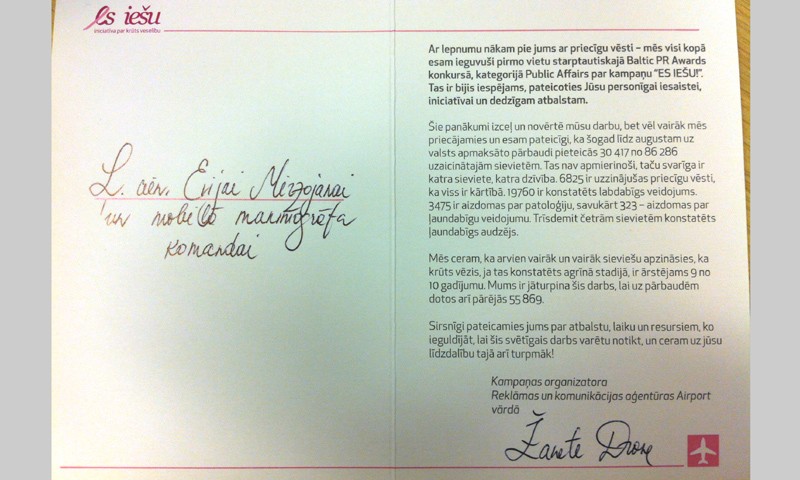 Es iešu
iniciatīva par krūts veselību
L. cien. Evijai Mirzojanai
un mobilā mammogrāfa
komandai
Ar lepnumu nākam pie jums ar priecīgu vēsti – mēs visi kopā
esam ieguvuši pirmo vietu starptautiskajā Baltic PR Awards
konkursā, kategorijā Public Affairs par kampaņu "ES IEŠU!".
Tas ir bijis iespējams, pateicoties Jūsu personīgai iesaistei,
iniciatīvai un dedzīgam atbalstam.
Šie panākumi izceļ un novērtē mūsu darbu, bet vēl vairāk mēs
priecājamies un esam pateicīgi, ka šogad līdz augustam uz
valsts apmaksāto pārbaudi pieteicās 30 417 no 86 286
uzaicinātajām sievietēm. Tas nav apmierinoši, taču svarīga ir
katra sieviete, katra dzīvība. 6825 ir uzzinājušas priecīgu vēsti,
ka viss ir kārtībā. 19760 ir konstatēts labdabīgs veidojums.
3475 ir aizdomas par patoloģiju, savukārt 323 – aizdomas par
ļaundabīgu veidojumu. Trīsdesmit četrām sievietēm konstatēts
ļaundabīgs audzējs.
Mēs ceram, ka arvien vairāk un vairāk sieviešu apzināsies, ka
krūts vēzis, ja tas konstatēts agrīnā stadijā, ir ārstējams 9 no
10 gadījumu. Mums ir jāturpina šis darbs, lai uz pārbaudēm
dotos arī pārējās 55 869.
Sirsnīgi pateicamies jums par atbalstu, laiku un resursiem, ko
ieguldījāt, lai šis svētīgais darbs varētu notikt, un ceram uz jūsu
līdzdalību tajā arī turpmāk!
Kampaņas organizatora
Reklāmas un komunikācijas aģentūras Airport
vārdā
Žanete Drone